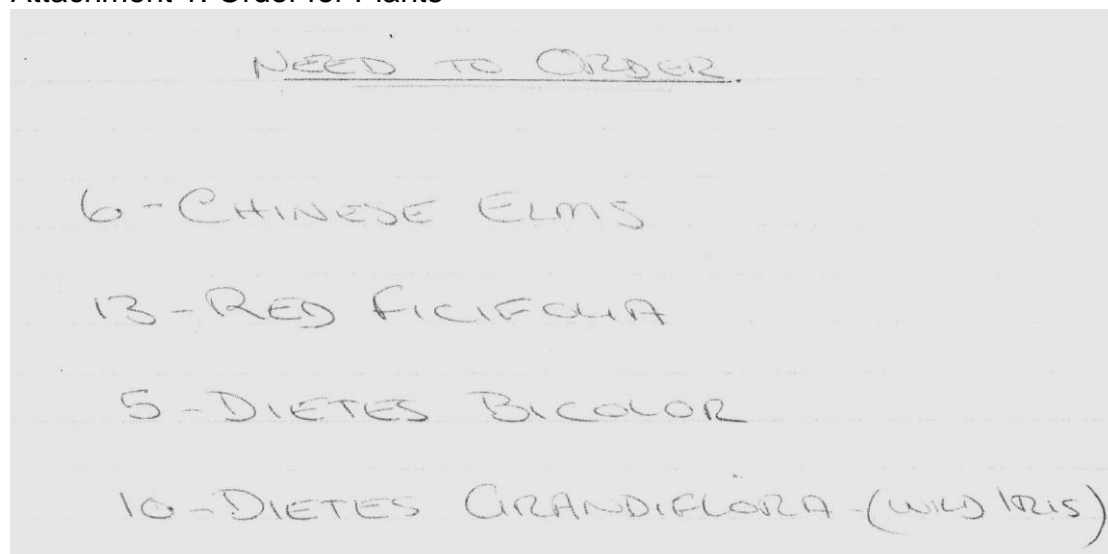 Attachment 1: Order for Plants
NEED TO ORDER.
6 - CHINESE ELMS
13 - RED FICIFOLIA
5 - DIETES BICOLOR
10 - DIETES GRANDIFLORA - (WILD IRIS)